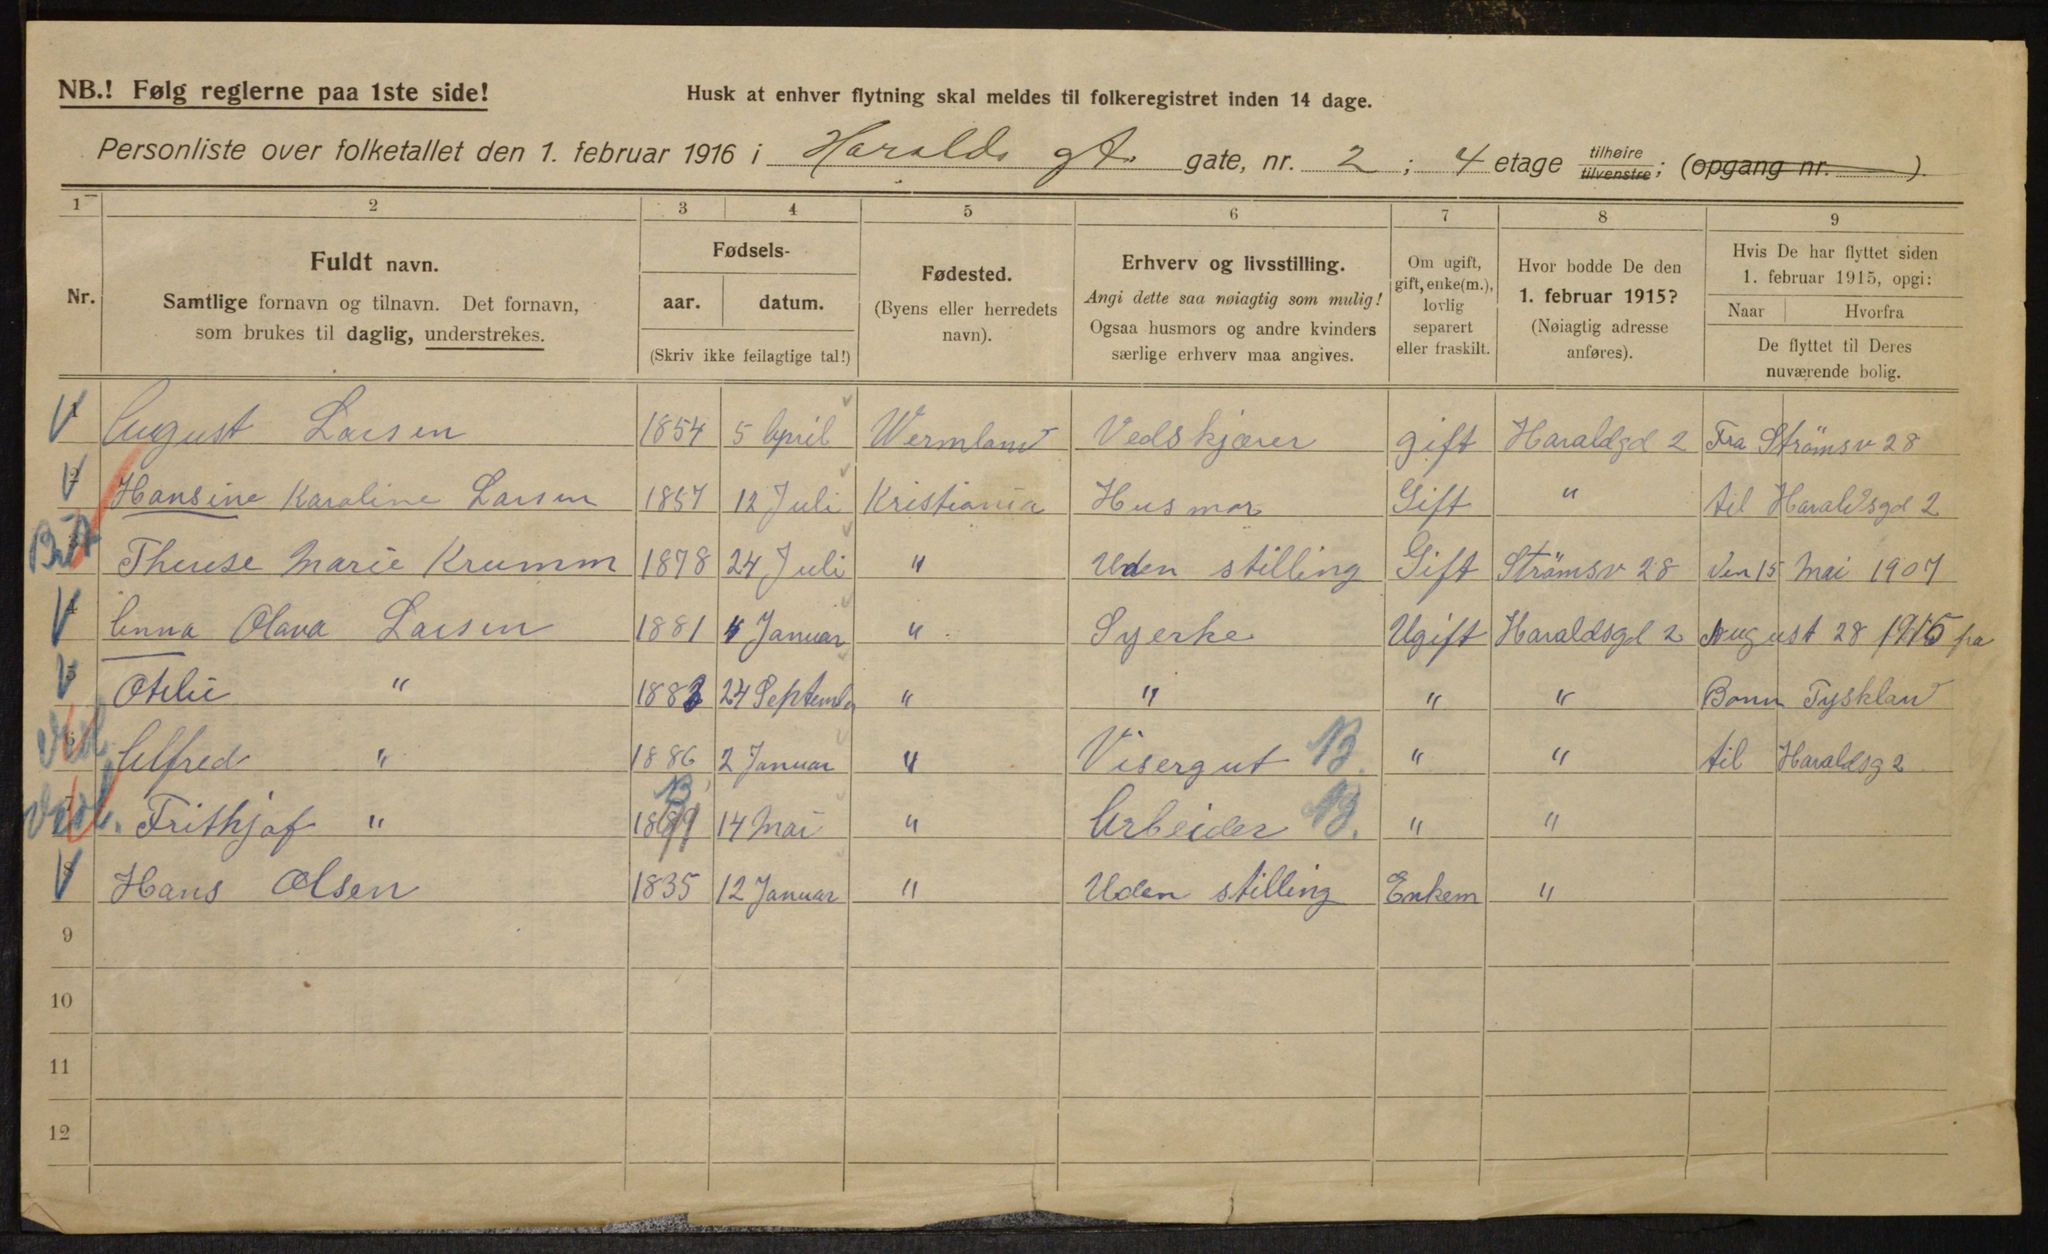 NB.! Følg reglerne paa 1ste side!
Husk at enhver flytning skal meldes til folkeregistret inden 14 dage.
Personliste over folketallet den 1. februar 1916 i Haralds gt. gate, nr. 2 ; 4 etage tilhøire tilvenstre ; (opgang nr. ).
1 2 3 4 5 6 7 8 9
Nr.
Fuldt navn.
Samtlige fornavn og tilnavn. Det fornavn,
som brukes til daglig, understrekes.
Fødsels-
aar. datum.
(Skriv ikke feilagtige tal!)
Fødested.
(Byens eller herredets
navn).
Erhverv og livsstilling.
Angi dette saa nøiagtig som mulig!
Ogsaa husmors og andre kvinders
særlige erhverv maa angives.
Om ugift,
gift, enke(m.),
lovlig
separert
eller fraskilt.
Hvor bodde De den
1. februar 1915?
(Nøiagtig adresse
anføres).
Hvis De har flyttet siden
1. februar 1915, opgi:
Naar Hvorfra
De flyttet til Deres
nuværende bolig.
1 August Larsen 1854 5 April Wermland Vedskjærer gift Haraldgd 2 Fra Strømsv 28
2 Hansine Karoline Larsen 1857 12 Juli Kristiania Husmor Gift " til Haraldsgd 2
Therese Marie Krumm 1878 24 Juli " Uden stilling Gift Strömsv 28 den 15 Mai 1907
4 Anna Olava Larsen 1881 4 Januar " Syerke Ugift Haraldsgd 2 August 28 1915 fra
5 Otilie " 1883 24 Septemb " " " " Bonn Tyskland
6 Alfred " 1886 2 Januar " Visergut B. " " til Haraldsg 2
7 Frithjof " 1889 14 Mai " Arbeider B. " "
8 Hans Olsen 1835 12 Januar " Uden stilling Enkem "
9
10
11
12